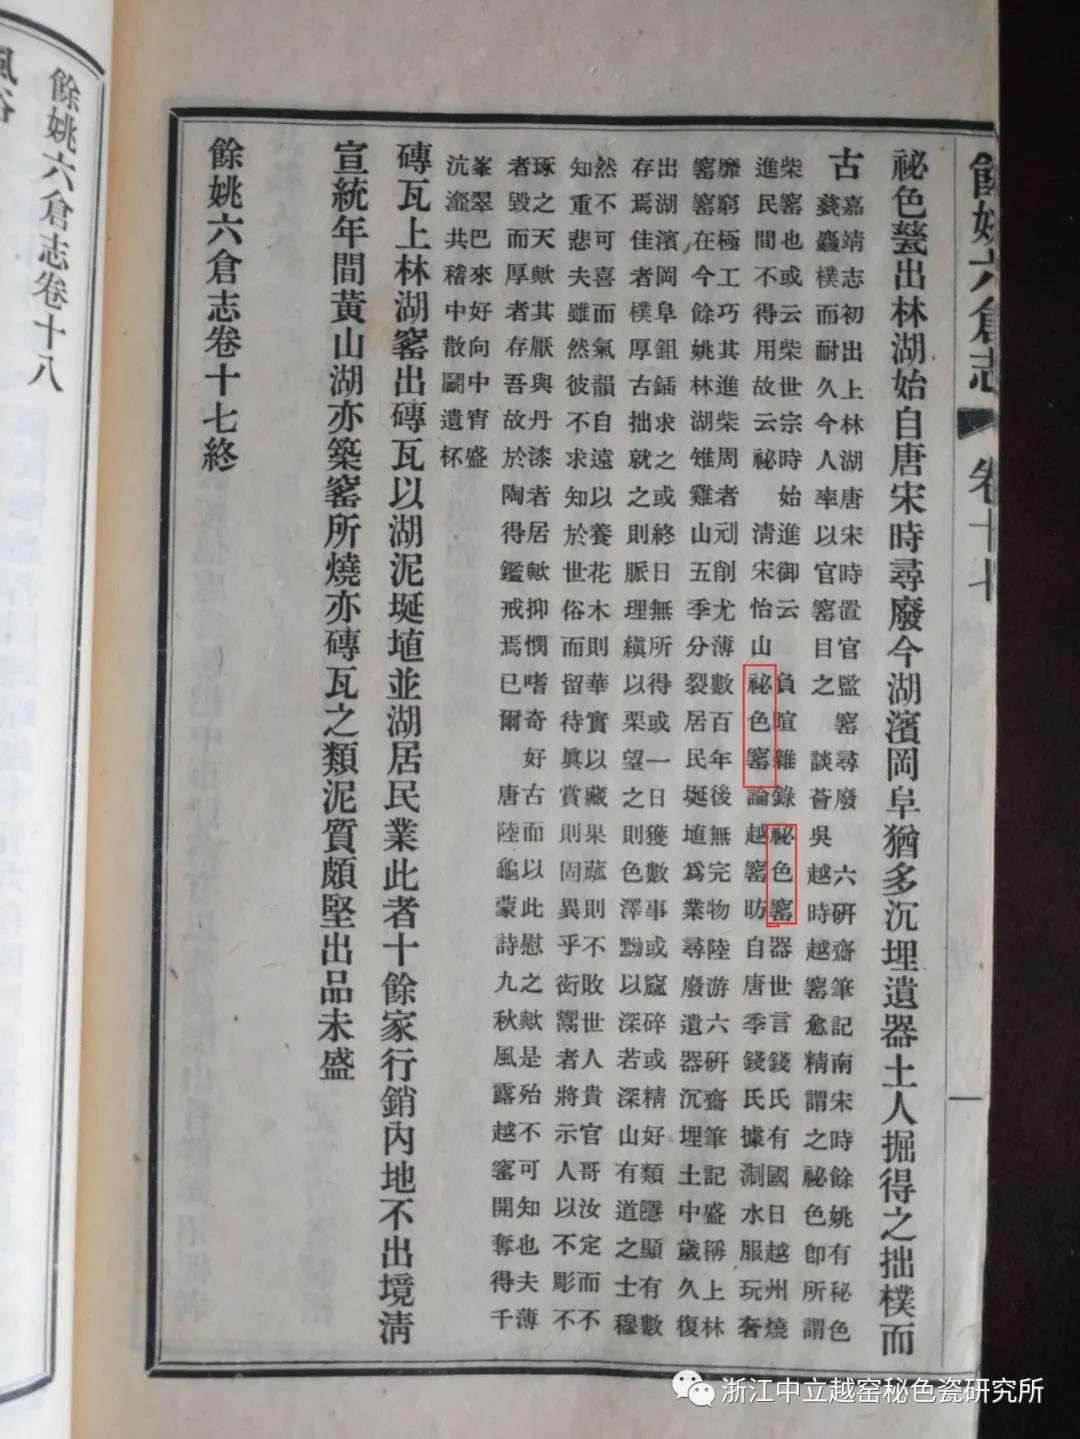 餘姚六倉志
卷十七
一
祕色甆出林湖始自唐宋時尋廢今湖濱岡阜猶多沉埋遺器土人掘得之拙樸而
古
嘉靖志初出上林湖唐宋時置官監窰尋廢 六硏齋筆記南宋時餘姚有秘色
甆麤樸而耐久今人率以官窰目之 談薈吳越時越窰愈精謂之祕色卽所謂
柴窰也或云柴世宗時始進御云 負暄雜錄祕色窰器世言錢氏有國日越州燒
進民間不得用故云祕 淸宋怡山祕色窰論越窰昉自唐季錢氏據淛水服玩奢
靡窮極工巧其進柴周者刓削尤薄數百年後無完物陸游六硏齋筆記盛稱上林
窰窰在今餘姚林湖雉雞山五季分裂居民埏埴爲業尋廢遺器沉埋土中歲久復
出湖濱岡阜鉏鍤求之或終日無所得或一日獲數事或窳碎或精好類隱顯有數
存焉佳者樸厚古拙就之則脈理縝以栗望之則色澤黝以深若深山有道之士穆
然不可喜而氣韻自遠以養花木則華實以藏果蓏則不敗世人貴官哥汝定而不
知重悲夫雖然彼不求知於世俗而留待眞賞則固異乎衒鬻者將示人以不彫不
琢之天歟其厭與丹漆者居歟抑憫嗜奇好古而以此慰之歟是殆不可知也夫薄
者毀而厚者存吾故於陶得鑑戒焉已爾 唐陸龜蒙詩九秋風露越窰開奪得千
峯翠巴來好向中宵盛
沆瀣共稽中散鬭遺杯
磚瓦上林湖窰出磚瓦以湖泥埏埴並湖居民業此者十餘家行銷內地不出境淸
宣統年間黃山湖亦築窰所燒亦磚瓦之類泥質頗堅出品未盛
餘姚六倉志卷十七終
餘姚六倉志卷十八
風俗
浙江中立越窑秘色瓷研究所